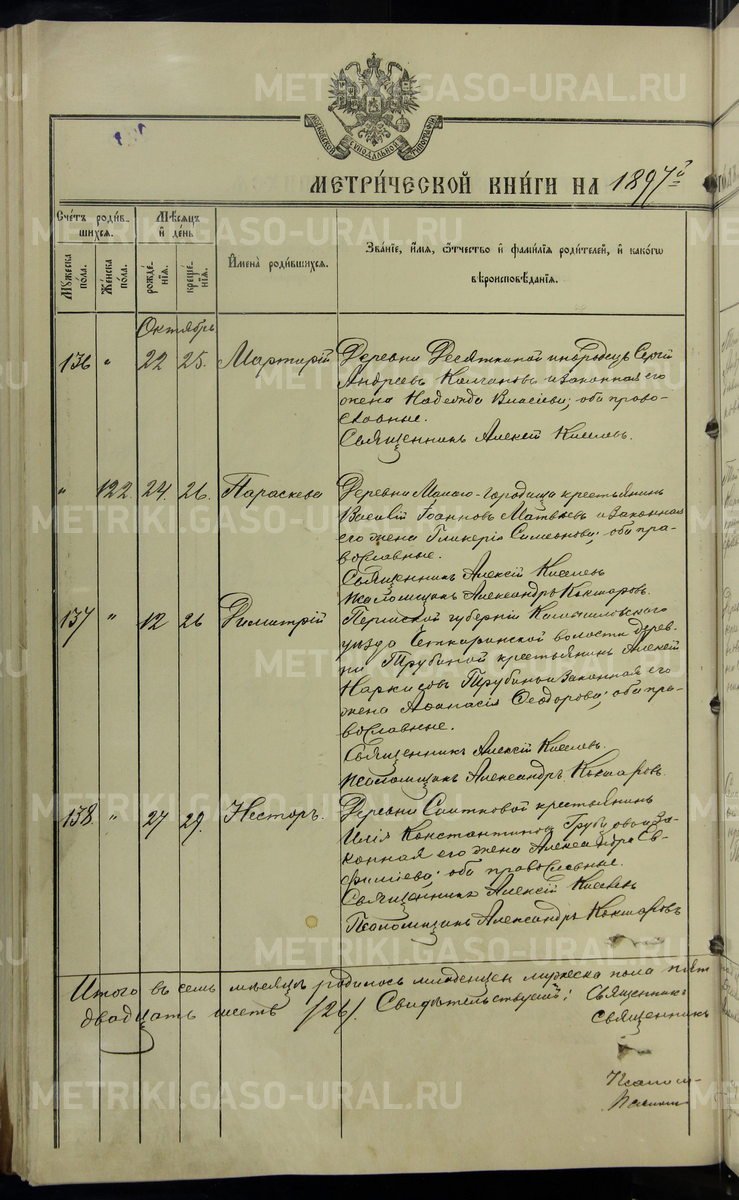 МОСКОВСКОЙ СѴНОДАЛЬНОЙ ТИПОГРАФІИ
МЕТРИ́ЧЕСКОЙ КНИ́ГИ НА 1897й
Сче́тъ роди́в-
шихся.
Мѣ́сяцъ
и҆ де́нь
И҆мена̀ роди́вшихся.
Зва́нїе, и҆́мѧ, ѻ҆́тчество и҆ фами́лїѧ роди́телей, и҆ како́гѡ
вѣроисповѣ́данїѧ.
Мꙋ́жеска по́ла.
Же́нска по́ла.
рожде́-нїѧ.
креще́-нїѧ.
Октябрь
136 " 22 25. Мартирій Деревни Десяткиной инородецъ Сергій
Андреевъ Колчановъ и законная его
жена Надежда Власіева; оба право-
славные.
Священникъ Алексій Киселевъ.
" 122. 24. 26. Параскева Деревни Малаго-городища крестьянинъ
Василій Іоанновъ Матвѣевъ и законная
его жена Гликерія Симеонова; оба пра-
вославные.
Священникъ Алексій Киселевъ
Псаломщикъ Александръ Кокшаровъ.
137 " 12 26 Димитрій Пермской губерніи Камышловскаго
уѣзда Четкаринской волости дерев-
ни Трубиной крестьянинъ Алексѣй
Наркисовъ Трубинъ и законная его
жена Афанасія Ѳеодорова; оба пра-
вославные.
Священникъ Алексій Киселевъ.
Псаломщикъ Александръ Кокшаровъ.
138 " 27 29. Несторъ. Деревни крестьянинъ
Илія Константиновъ и за-
конная его жена Александра Ев-
фиміева; оба православные.
Священникъ Алексій Киселевъ
Псаломщикъ Александръ Кокшаровъ
Итого въ семъ мѣсяцѣ родилось младенцевъ мужеска пола
двадцать шесть /26/. Свидѣтельствуемъ: Священникъ
Священникъ
Псалом-
METRIKI.GASO-URAL.RU